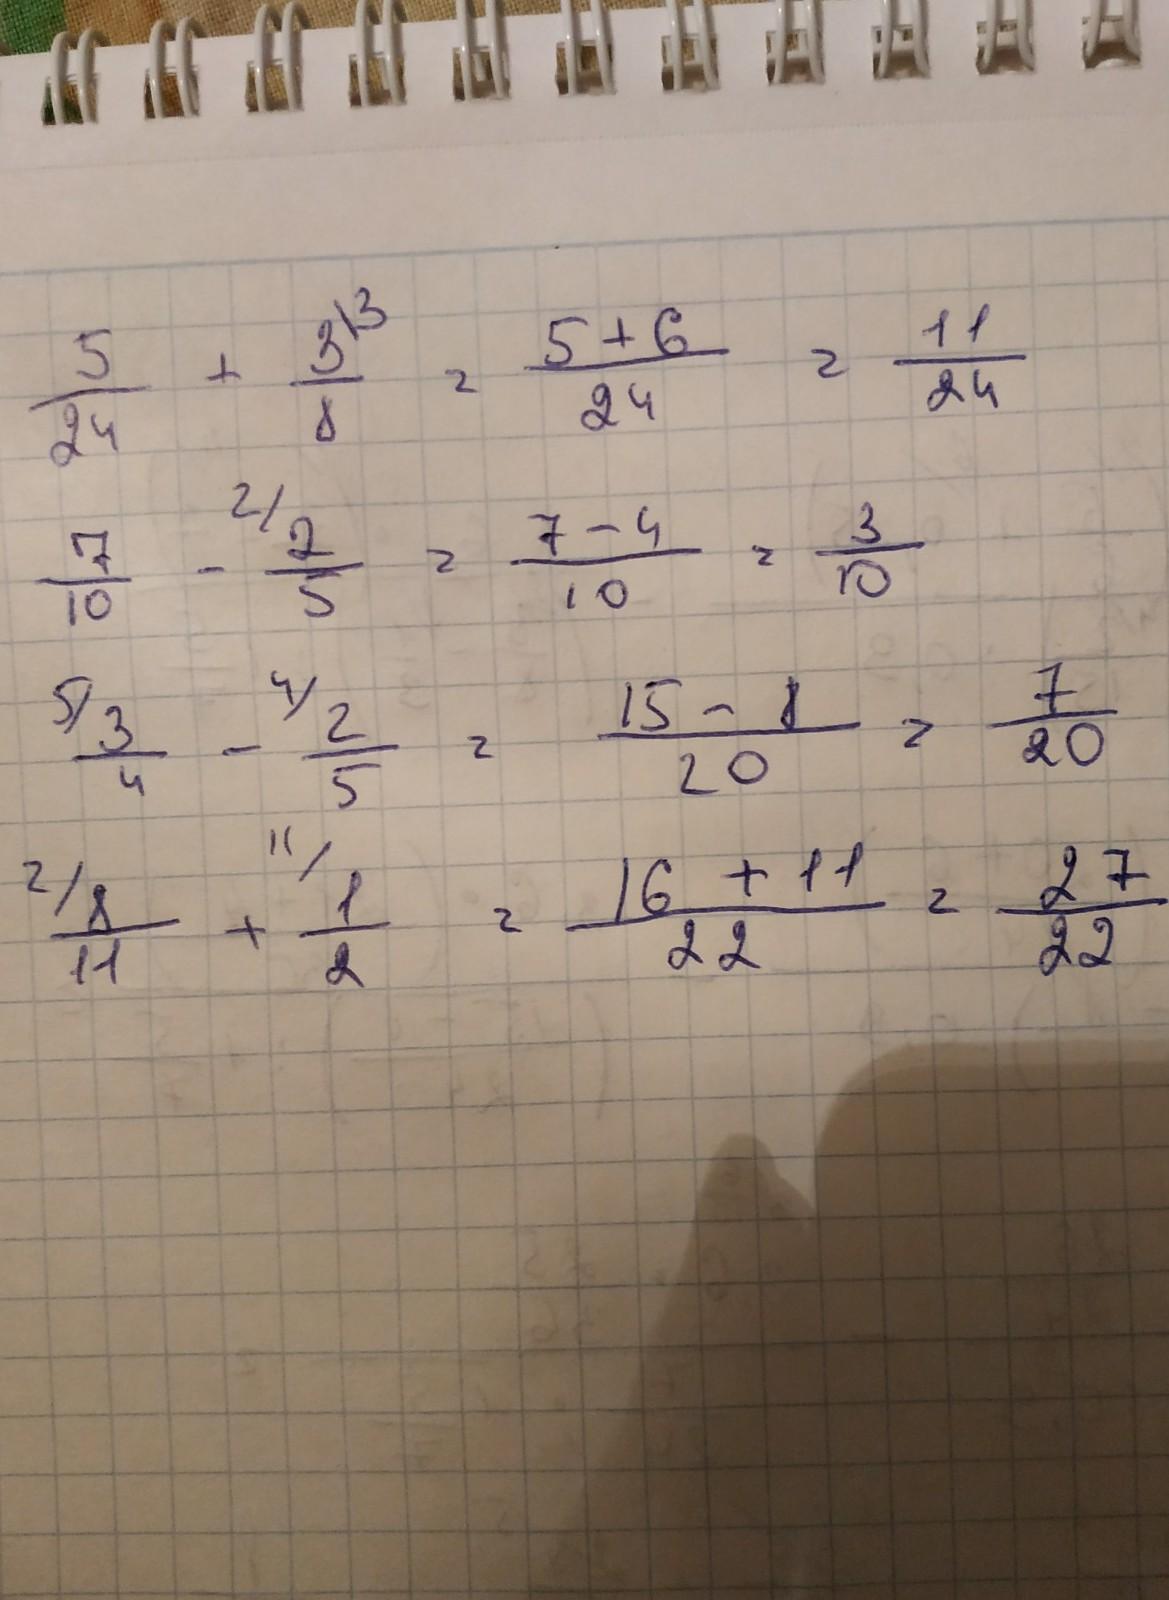 5/24 + 3\3/8 = 5+6/24 = 11/24
7/10 - 2/2/5 = 7-4/10 = 3/10
5/3/4 - 4/2/5 = 15-8/20 = 7/20
2/8/11 + 11/1/2 = 16+11/22 = 27/22